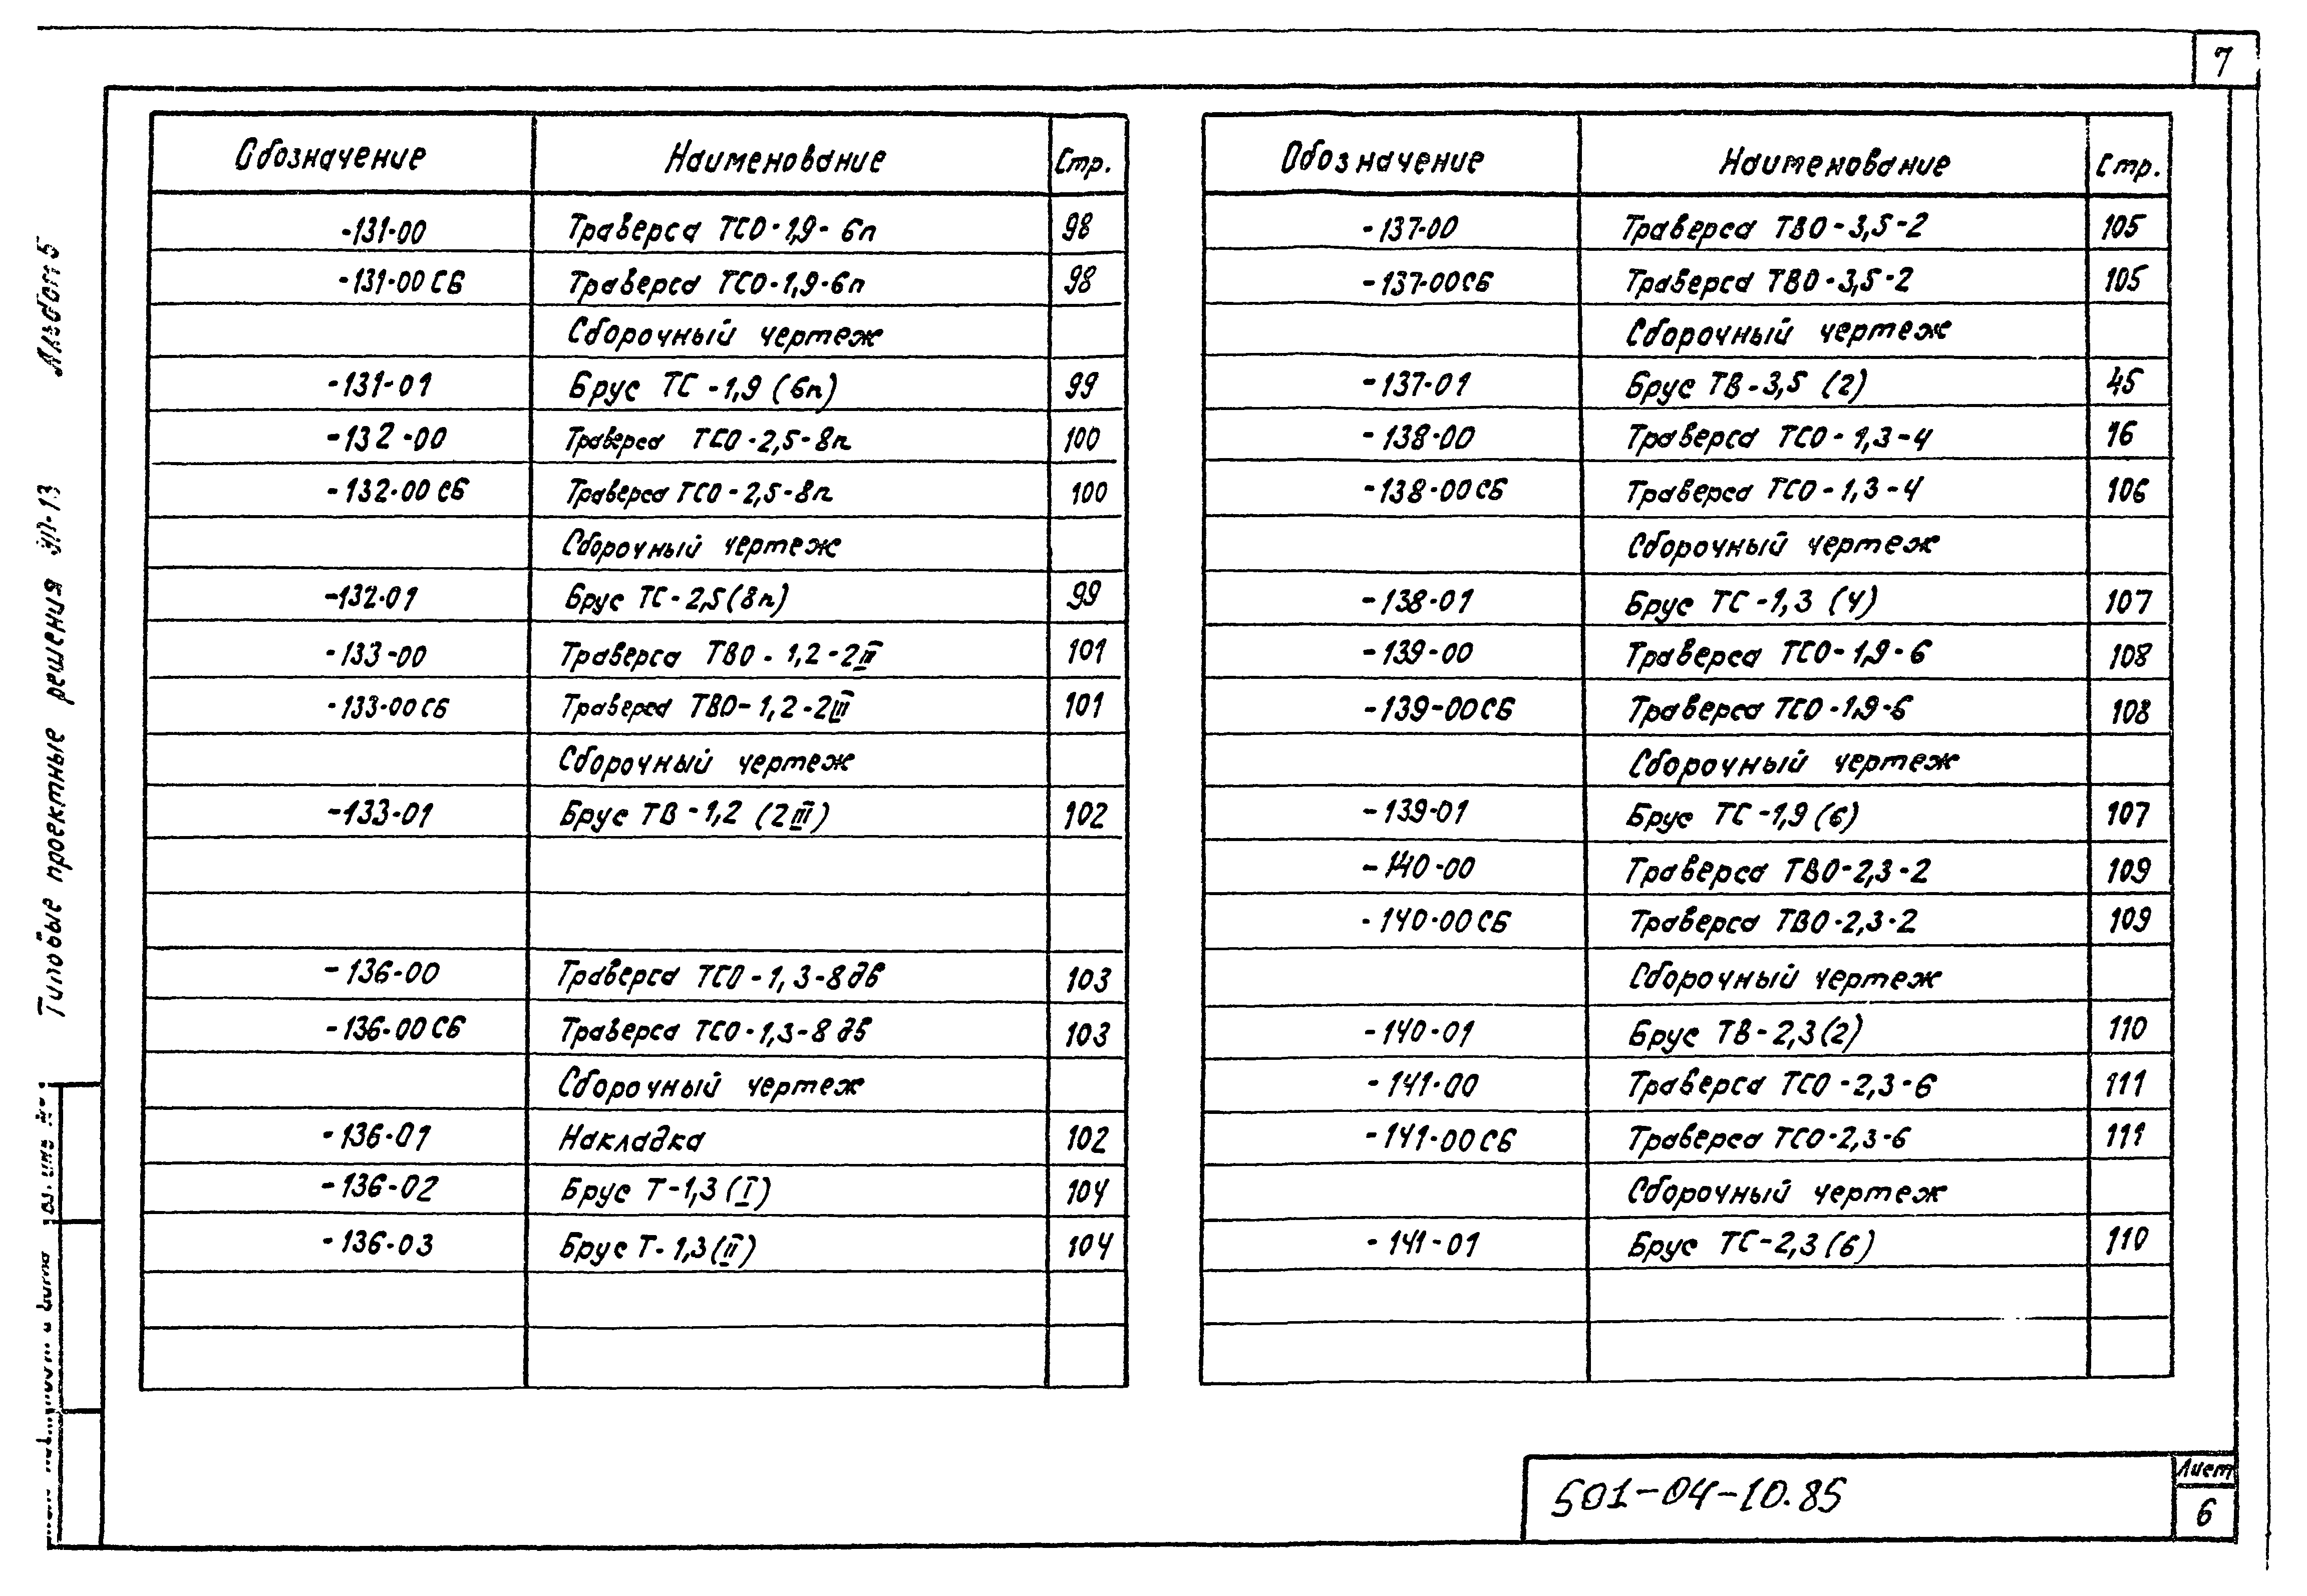 7
Обозначение Наименование Стр.
-131-00 Траверса ТСО-1,9-6п 98
-131-00 СБ Траверса ТСО-1,9-6п 98
Сборочный чертеж
-131-01 Брус ТС-1,9 (6п) 99
-132-00 Траверса ТСО-2,5-8п 100
-132-00 СБ Траверса ТСО-2,5-8п 100
Сборочный чертеж
-132-01 Брус ТС-2,5(8п) 99
-133-00 Траверса ТВО-1,2-2III 101
-133-00 СБ Траверса ТВО-1,2-2III 101
Сборочный чертеж
-133-01 Брус ТВ-1,2 (2III) 102
-136-00 Траверса ТСО-1,3-8дв 103
-136-00 СБ Траверса ТСО-1,3-8дв 103
Сборочный чертеж
-136-01 Накладка 102
-136-02 Брус Т-1,3(I) 104
-136-03 Брус Т-1,3(II) 104
Обозначение Наименование Стр.
-137-00 Траверса ТВО-3,5-2 105
-137-00СБ Траверса ТВО-3,5-2 105
Сборочный чертеж
-137-01 Брус ТВ-3,5 (2) 45
-138-00 Траверса ТСО-1,3-4 16
-138-00СБ Траверса ТСО-1,3-4 106
Сборочный чертеж
-138-01 Брус ТС-1,3 (4) 107
-139-00 Траверса ТСО-1,9-6 108
-139-00СБ Траверса ТСО-1,9-6 108
Сборочный чертеж
-139-01 Брус ТС-1,9(6) 107
-140-00 Траверса ТВО-2,3-2 109
-140-00СБ Траверса ТВО-2,3-2 109
Сборочный чертеж
-140-01 Брус ТВ-2,3(2) 110
-141-00 Траверса ТСО-2,3-6 111
-141-00СБ Траверса ТСО-2,3-6 111
Сборочный чертеж
-141-01 Брус ТС-2,3(6) 110
Типовые проектные решения 13 Альбом 5
501-04-10.85
Лист
6